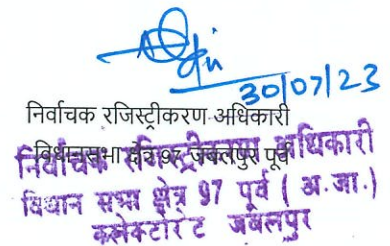 30/07/23
निर्वाचक रजिस्ट्रीकरण अधिकारी
विधानसभा क्षेत्र 97 जबलपुर पूर्व
निर्वाचक रजिस्ट्रीकरण अधिकारी
विधान सभा क्षेत्र 97 पूर्व ( अ.जा.)
कलेक्टोरेट जबलपुर